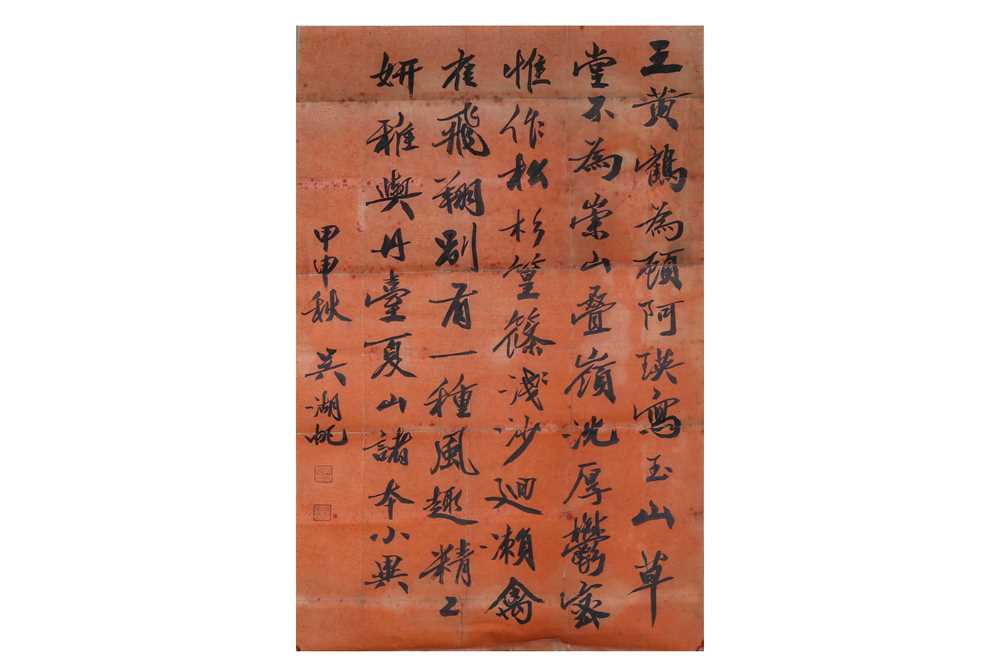 王黄鶴為頋阿瑛寫玉山草
堂不為崇山叠嶺沈厚鬱密
惟作松杉篁篠浅沙迴瀨禽
雀飛翔别有一種風趣精工
妍雅與丹臺夏山諸本小異
甲申秋 吴湖帆